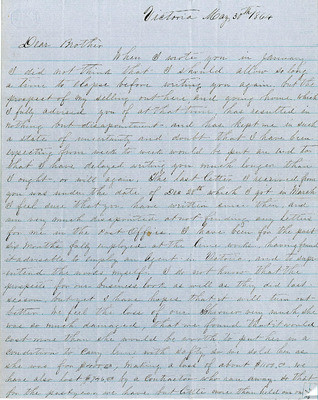 Victoria May 30th 1864
Dear Brother
When I wrote you in January
I did not think that I should allow so long
a time to elapse before writing you again, but the
prospect of my selling out here and going home which
I fully advised you of at that time, has resulted in
nothing but disappointment and has kept me in such
a state of uncertainty and doubt that I have been
expecting from week to week would be put an end to
that I have delayed writing you much longer than
I ought or will again. The last letter I received from
you was under the date of Dec 28th which I got in March
I feel sure that you have written since then, and
am very much disappointed at not finding any letters
for me in the Post Office. I have been for the past
six Months fully employed at the Lime works having found
it advisable to employ an Agent in Victoria and to super
intend the works myself, I do not know that the
prospects for our business look as well as they did last
season but yet I have hopes that it will turn out
better. We feel the loss of our Schooner very much she
was so much damaged that we found that it would
cost more than she would be worth to put her in a
condition to carry lime with safety so we sold her as
she was for making a loss of about we
have also lost by a Contractor who ran away so that
for the past year we have but little more than held our own